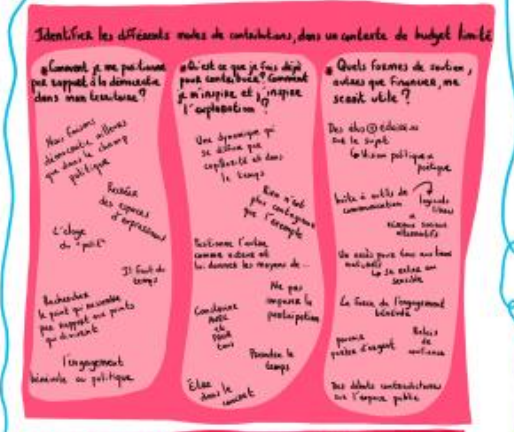 Identifier les différents modes de contributions, dans un contexte de budget limité
Comment je me positionne
par rapport à la démocratie
dans mon territoire ?
Nous faisons
démocratie ailleurs
que dans le champ
politique
Recréer
des espaces
d'expression
L'éloge
du "petit"
Il faut du
temps
Rechercher
le point qui rassemble
par rapport aux points
qui divisent
L'engagement
bénévole ou politique
Qu'est ce que je fais déjà
pour contribuer ? Comment
je m'inspire et j'inspire
l'exploration ?
Une dynamique qui
se diffuse par
capillarité et dans
le temps
Rien n'est
plus contagieux
que l'exemple
Positionner l'autre
comme acteur et
lui donner les moyens de ...
Ne pas
imposer la
participation
Construire
AVEC
et
POUR
tous
Prendre le
temps
Être
dans le
concret
Quels formes de soutien,
autres que financier, me
serait utile ?
Des élus éclairés
sur le sujet
Vision politique
poétique
boîte à outils de
communication
logiciels
libres
réseaux sociaux
alternatifs
Un accès pour tous aux lieux
sensible
La force de l'engagement
bénévole
Relais
de
confiance
Des débats contradictoires
sur l'espace public